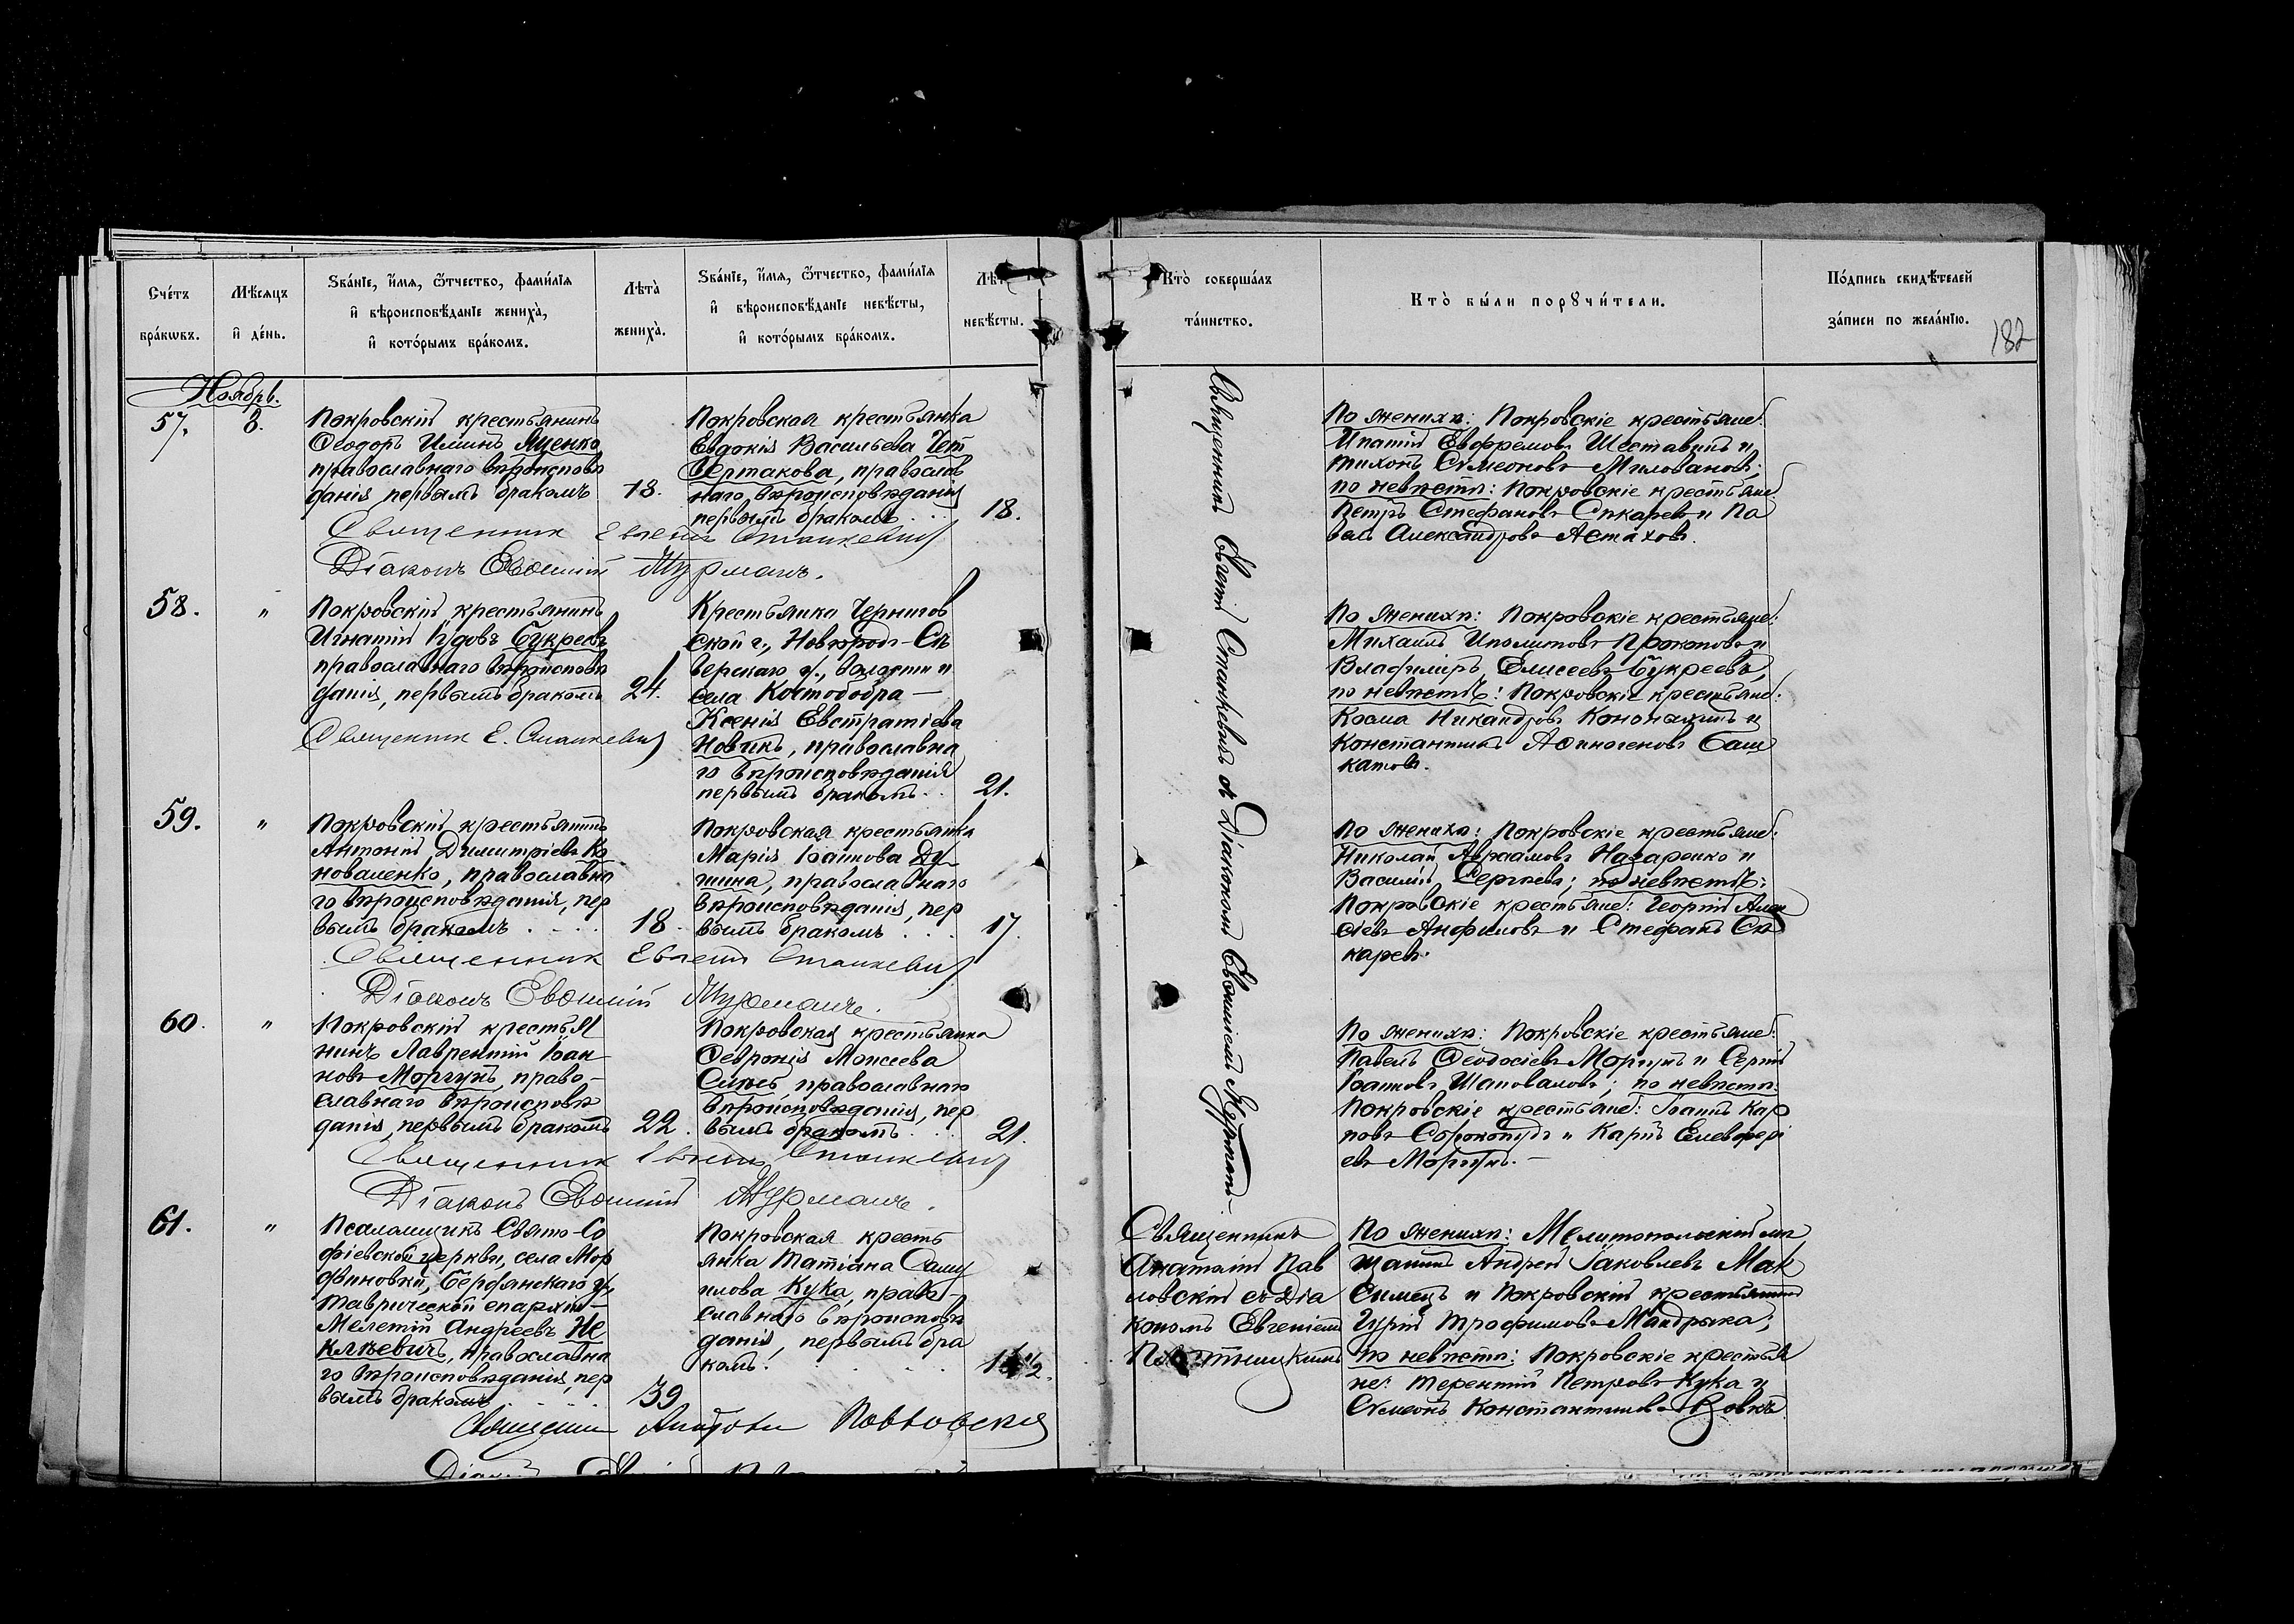 Счетъ
браковъ.
Мѣсяцъ
и день.
Званіе, имя, отчество, фамилія
и вѣроисповѣданіе жениха,
и которымъ бракомъ.
Лѣта
жениха.
Званіе, имя, отчество, фамилія
и вѣроисповѣданіе невѣсты,
и которымъ бракомъ.
невѣсты.
Кто совершалъ
таинство.
Кто были поручители.
Подпись свидѣтелей
записи по желанію.
182
Ноябрь.
57.
8.
Покровскій крестьянинъ
Ѳеодоръ Ильинъ Яценко
православнаго вѣроисповѣ
данія, первымъ бракомъ
18.
Покровская крестьянка
Евдокія Васильева Чет
вертакова, православ
наго вѣроисповѣданія
первымъ бракомъ
18.
Священникъ Евгеній Станкевичъ
Діаконъ Евѳимій Мурманъ.
По женихѣ: Покровскіе крестьяне:
Ипатій Евфремовъ Шеставинъ и
Тихонъ Сѵмеоновъ Миловановъ;
по невѣстѣ: Покровскіе крестьяне
Петръ Стефановъ Сикаревъ и Па
велъ Александровъ Астаховъ.
Священникъ Евгеній Станкевичъ съ Діакономъ Евѳиміемъ Мурманъ
58.
"
Покровскій крестьянинъ
Игнатій Іудовъ Букреевъ
православнаго вѣроисповѣ
данія, первымъ бракомъ
24.
Крестьянка Чернигов
ской г., Новгород-Сѣ
верскаго у., волости и
села Костобобра —
Ксенія Евстратіева
Новикъ, православна
го вѣроисповѣданія
первымъ бракомъ
21.
Священникъ Е. Станкевичъ
По женихѣ: Покровскіе крестьяне:
Михаилъ Прокоповъ и
Владиміръ Елисеевъ Букреевъ;
по невѣстѣ: Покровскіе крестьяне:
Косма Никандровъ и
Константинъ Аѳиногеновъ Баш
катовъ.
59.
"
Покровскій крестьянинъ
Антоній Димитріевъ Ко
новаленко, православна
го вѣроисповѣданія, пер
вымъ бракомъ
18
Покровская крестьянка
Марія Іоаннова Ду
шина, православнаго
вѣроисповѣданія, пер
вымъ бракомъ
17.
Священникъ Евгеній Станкевичъ
Діаконъ Евѳимій Мурманъ.
По женихѣ: Покровскіе крестьяне:
Николай Авраамовъ Назаренко и
Василій Сергѣевъ; по невѣстѣ:
Покровскіе крестьяне: Георгій Алек
сіевъ Анфиловъ и Стефанъ Си
каревъ.
60.
"
Покровскій крестья
нинъ Лаврентій Іоан
новъ Моргунъ, право-
славнаго вѣроисповѣ
данія, первымъ бракомъ
22.
Покровская крестьянка
Февронія Моисеева
православнаго
вѣроисповѣданія, пер
вымъ бракомъ
21.
Священникъ Евгеній Станкевичъ
Діаконъ Евѳимій Мурманъ.
По женихѣ: Покровскіе крестьяне:
Павелъ Ѳеодосіевъ Моргунъ и Сергій
Іоанновъ Шаповаловъ; по невѣстѣ:
Покровскіе крестьяне: Іоаннъ Кар
повъ Сорокопудъ и Карпъ Елевфері
евъ Моргунъ. —
61.
"
Псаломщикъ Свято-Со
фіевской церкви, села Мор
двиновки, Бердянскаго у.,
Таврической епархіи —
Мелетій Андреевъ Не
православна
го вѣроисповѣданія, пер
вымъ бракомъ
39
Покровская кресть
янка Татіана Саму
илова Кука, право-
славнаго вѣроисповѣ
данія, первымъ бра
комъ.
Священникъ
Анатолій Пав
ловскій съ Діа
кономъ Евгеніемъ
По женихѣ: Мелитопольскій мѣ
щанинъ Андрей Іаковлевъ Мак
симецъ и Покровскій крестьянинъ
Гурій Трофимовъ Мандрыка;
по невѣстѣ: Покровскіе крестья
не: Терентій Петровъ Кука и
Сѵмеонъ Константиновъ Вовкъ.
Священникъ Анатолій Павловскій